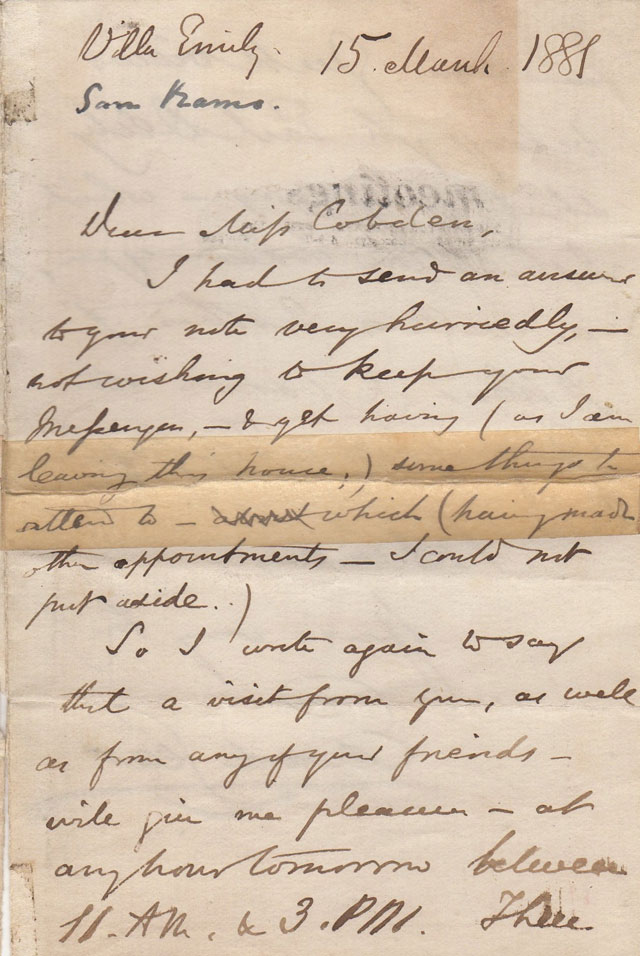 Villa Emily. 15. March. 1881
San Remo.
Dear Miss Cobden,
I had to send an answer
to your note very hurriedly, —
not wishing to keep your
Messenger, — & yet having (as I am
leaving this house,) some things to
attend to — about which (having made
other appointments — I could not
put aside..)
So I write again to say
that a visit from you, as well
as from any of your friends —
will give me pleasure — at
any hour tomorrow between
11. AM. & 3. PM. There